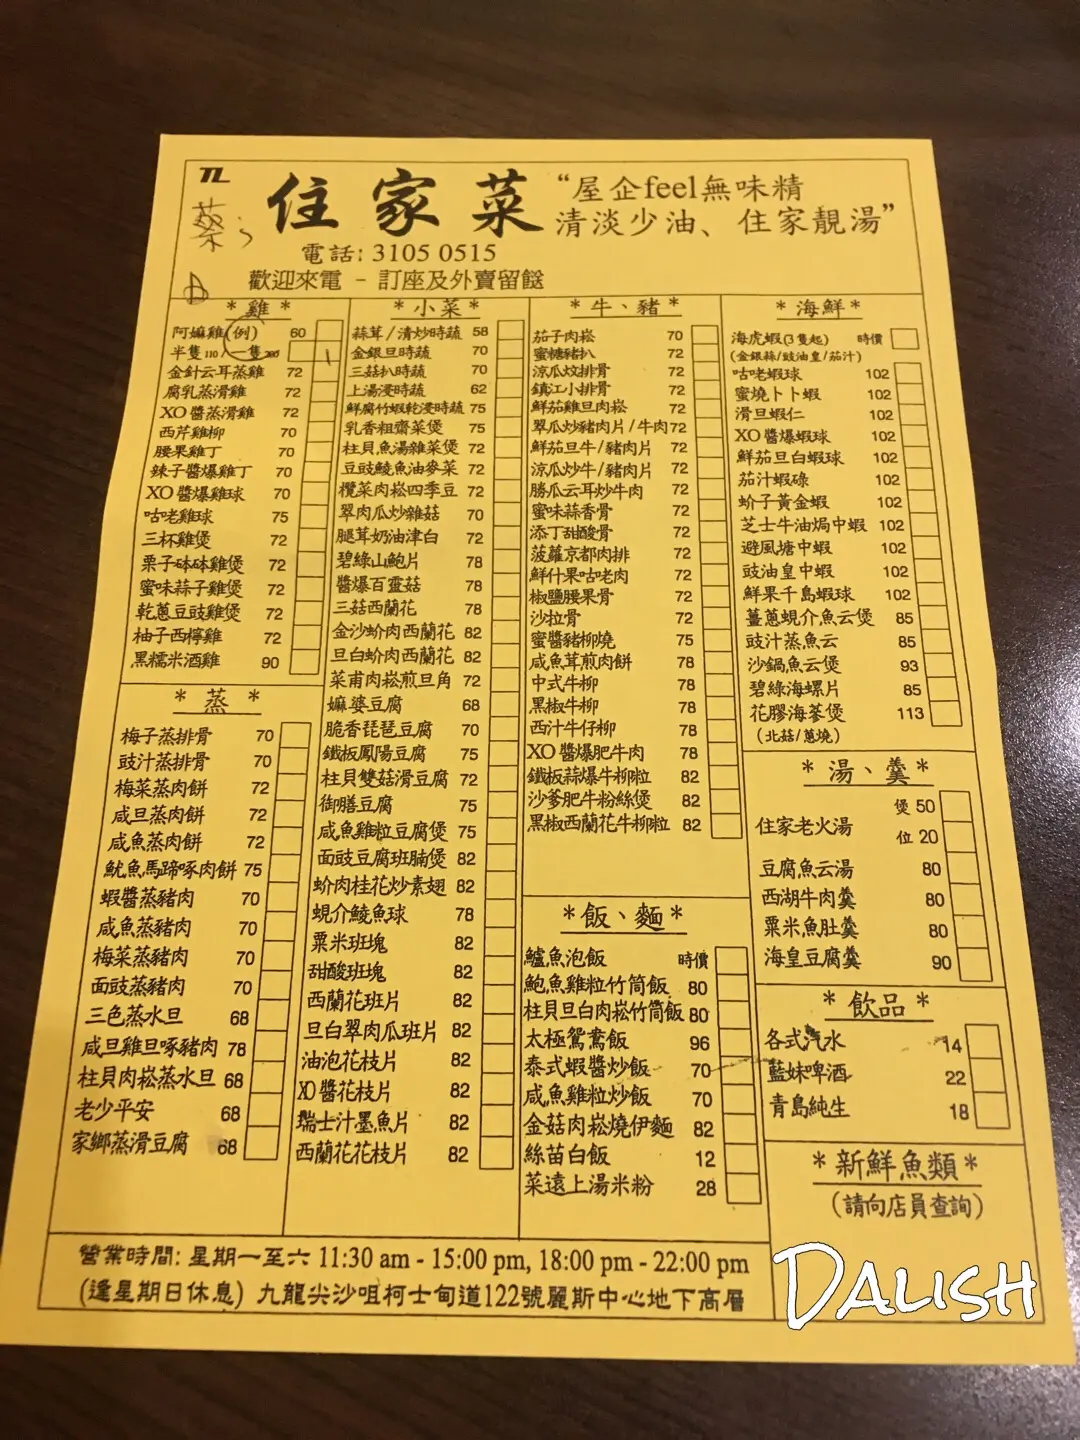 TL
住家菜
“屋企feel無味精
清淡少油、住家靚湯”
電話: 3105 0515
歡迎來電 - 訂座及外賣留餸
* 雞 *
阿嫲雞(例) 60
半隻110 / 一隻200
金針云耳蒸雞 72
腐乳蒸滑雞 72
XO醬蒸滑雞 72
西芹雞柳 70
腰果雞丁 70
辣子醬爆雞丁 70
XO醬爆雞球 70
咕老雞球 75
三杯雞煲 72
栗子砵砵雞煲 72
蜜味蒜子雞煲 72
乾蔥豆豉雞煲 72
柚子西檸雞 72
黑糯米酒雞 90
* 蒸 *
梅子蒸排骨 70
豉汁蒸排骨 70
梅菜蒸肉餅 72
咸旦蒸肉餅 72
咸魚蒸肉餅 72
魷魚馬蹄啄肉餅 75
蝦醬蒸豬肉 70
咸魚蒸豬肉 70
梅菜蒸豬肉 70
面豉蒸豬肉 70
三色蒸水旦 68
咸旦雞旦啄豬肉 78
柱貝肉崧蒸水旦 68
老少平安 68
家鄉蒸滑豆腐 68
* 小菜 *
蒜茸/清炒時蔬 58
金銀旦時蔬 70
三菇扒時蔬 70
上湯浸時蔬 62
鮮腐竹蝦乾浸時蔬 75
乳香粗齋菜煲 75
柱貝魚湯雜菜煲 72
豆豉鯪魚油麥菜 72
欖菜肉崧四季豆 72
翠肉瓜炒雜菇 70
腿茸奶油津白 72
碧綠山鮑片 78
醬爆百靈菇 78
三菇西蘭花 78
金沙蚧肉西蘭花 82
旦白蚧肉西蘭花 82
菜甫肉崧煎旦角 72
嫲婆豆腐 68
脆香琵琶豆腐 70
鐵板鳳陽豆腐 75
柱貝雙菇滑豆腐 72
御膳豆腐 75
咸魚雞粒豆腐煲 75
面豉豆腐班腩煲 82
蚧肉桂花炒素翅 82
蜆介鯪魚球 78
粟米班塊 82
甜酸班塊 82
西蘭花班片 82
旦白翠肉瓜班片 82
油泡花枝片 82
XO醬花枝片 82
瑞士汁墨魚片 82
西蘭花花枝片 82
* 牛、豬 *
茄子肉崧 70
蜜糖豬扒 72
涼瓜炆排骨 72
鎮江小排骨 72
鮮茄雞旦肉崧 72
翠瓜炒豬肉片/牛肉 72
鮮茄旦牛/豬肉片 72
涼瓜炒牛/豬肉片 72
勝瓜云耳炒牛肉 72
蜜味蒜香骨 72
添丁甜酸骨 72
菠蘿京都肉排 72
鮮什果咕老肉 72
椒鹽腰果骨 72
沙拉骨 72
蜜醬豬柳燒 75
咸魚茸煎肉餅 78
中式牛柳 78
黑椒牛柳 78
西汁牛仔柳 78
XO醬爆肥牛肉 78
鐵板蒜爆牛柳粒 82
沙爹肥牛粉絲煲 82
黑椒西蘭花牛柳粒 82
*飯、麵*
鱸魚泡飯 時價
鮑魚雞粒竹筒飯 80
柱貝旦白肉崧竹筒飯 80
太極鴛鴦飯 96
泰式蝦醬炒飯 70
咸魚雞粒炒飯 70
金菇肉崧燒伊麵 82
絲苗白飯 12
菜遠上湯米粉 28
* 海鮮*
海虎蝦(3隻起) 時價
(金銀蒜/豉油皇/茄汁)
咕咾蝦球 102
蜜燒卜卜蝦 102
滑旦蝦仁 102
XO醬爆蝦球 102
鮮茄旦白蝦球 102
茄汁蝦碌 102
蚧子黃金蝦 102
芝士牛油焗中蝦 102
避風塘中蝦 102
豉油皇中蝦 102
鮮果千島蝦球 102
薑蔥蜆介魚云煲 85
豉汁蒸魚云 85
沙鍋魚云煲 93
碧綠海螺片 85
花膠海蔘煲 113
(北菇/蔥燒)
* 湯、羹*
煲 50
住家老火湯
位 20
豆腐魚云湯 80
西湖牛肉羹 80
粟米魚肚羹 80
海皇豆腐羹 90
* 飲品*
各式汽水 14
藍妹啤酒 22
青島純生 18
*新鮮魚類*
(請向店員查詢)
營業時間: 星期一至六 11:30 am - 15:00 pm, 18:00 pm - 22:00 pm
(逢星期日休息) 九龍尖沙咀柯士甸道122號麗斯中心地下高層
DALISH